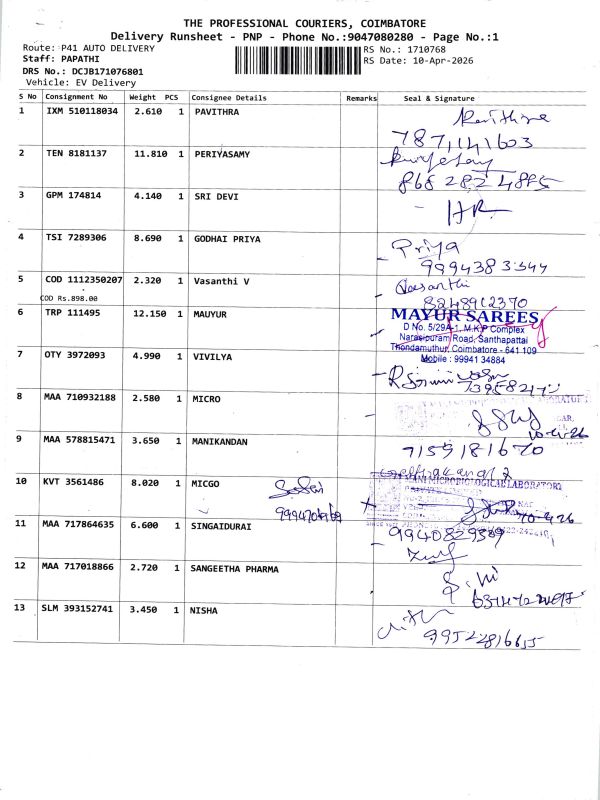 THE PROFESSIONAL COURIERS, COIMBATORE
Delivery Runsheet - PNP - Phone No.:9047080280 - Page No.:1
Route: P41 AUTO DELIVERY
RS No.: 1710768
Staff: PAPATHI
RS Date: 10-Apr-2026
DRS No.: DCJB171076801
Vehicle: EV Delivery
S No Consignment No Weight PCS Consignee Details Remarks Seal & Signature
1 IXM 510118034 2.610 1 PAVITHRA
2 TEN 8181137 11.810 1 PERIYASAMY
3 GPM 174814 4.140 1 SRI DEVI HR
4 TSI 7289306 8.690 1 GODHAI PRIYA Priya
5 COD 1112350207 2.320 1 Vasanthi V Vasanthi
COD Rs.898.00
8248912370
6 TRP 111495 12.150 1 MAUYUR MAYUR SAREES
D No. 5/29A-1, M.K.P Complex
Narasipuram Road, Santhapattai
Thondamuthur, Coimbatore - 641 109
Mobile : 99941 34884
7 OTY 3972093 4.990 1 VIVILYA
8 MAA 710932188 2.580 1 MICRO
10-4-26
9 MAA 578815471 3.650 1 MANIKANDAN 7159181670
10 KVT 3561486 8.020 1 MICGO MICROBIOLOGICAL LABORATORY
11 MAA 717864635 6.600 1 SINGAIDURAI
12 MAA 717018866 2.720 1 SANGEETHA PHARMA
13 SLM 393152741 3.450 1 NISHA